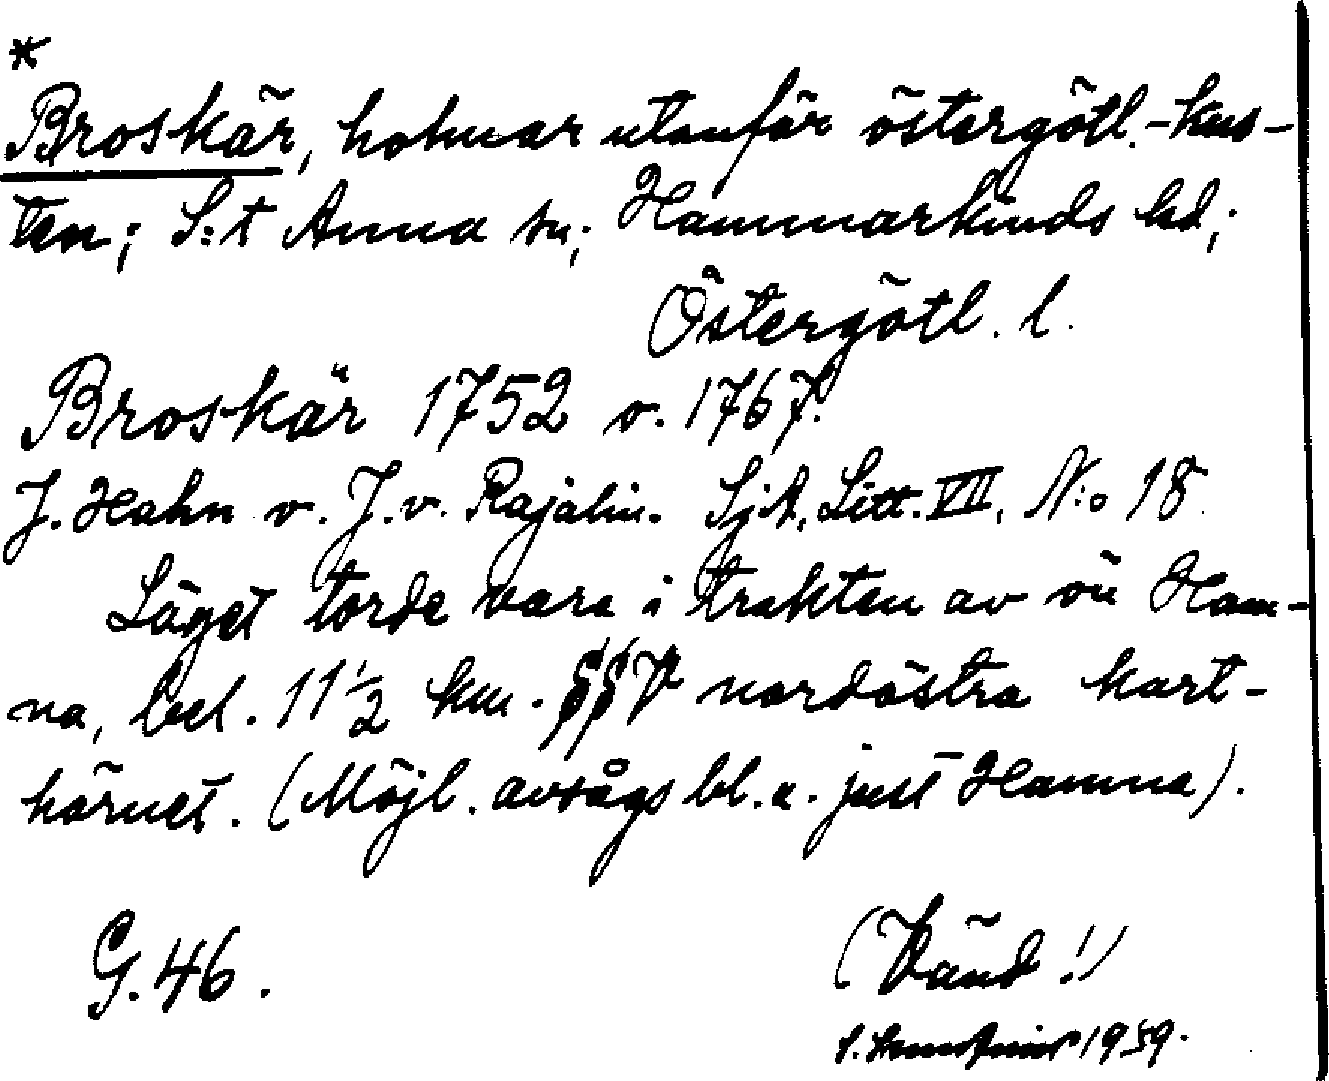 *
Broskär, holmar utanför östergötl.-kus-
ten; S:t Anna sn; Hammarkinds hd;
Östergötl. l.
Broskär 1752 o. 1767.
J. Hahn o. J. v. Rajalin. Sj.A. Litt. VII, N:o 18.
Läget torde vara i trakten av ön Ham-
na, bel. 11 1/2 km. SSV nordöstra kart-
hörnet. (Möjl. avsågs bl.a. just Hamna).
G. 46.
(Vänd!)
1959.